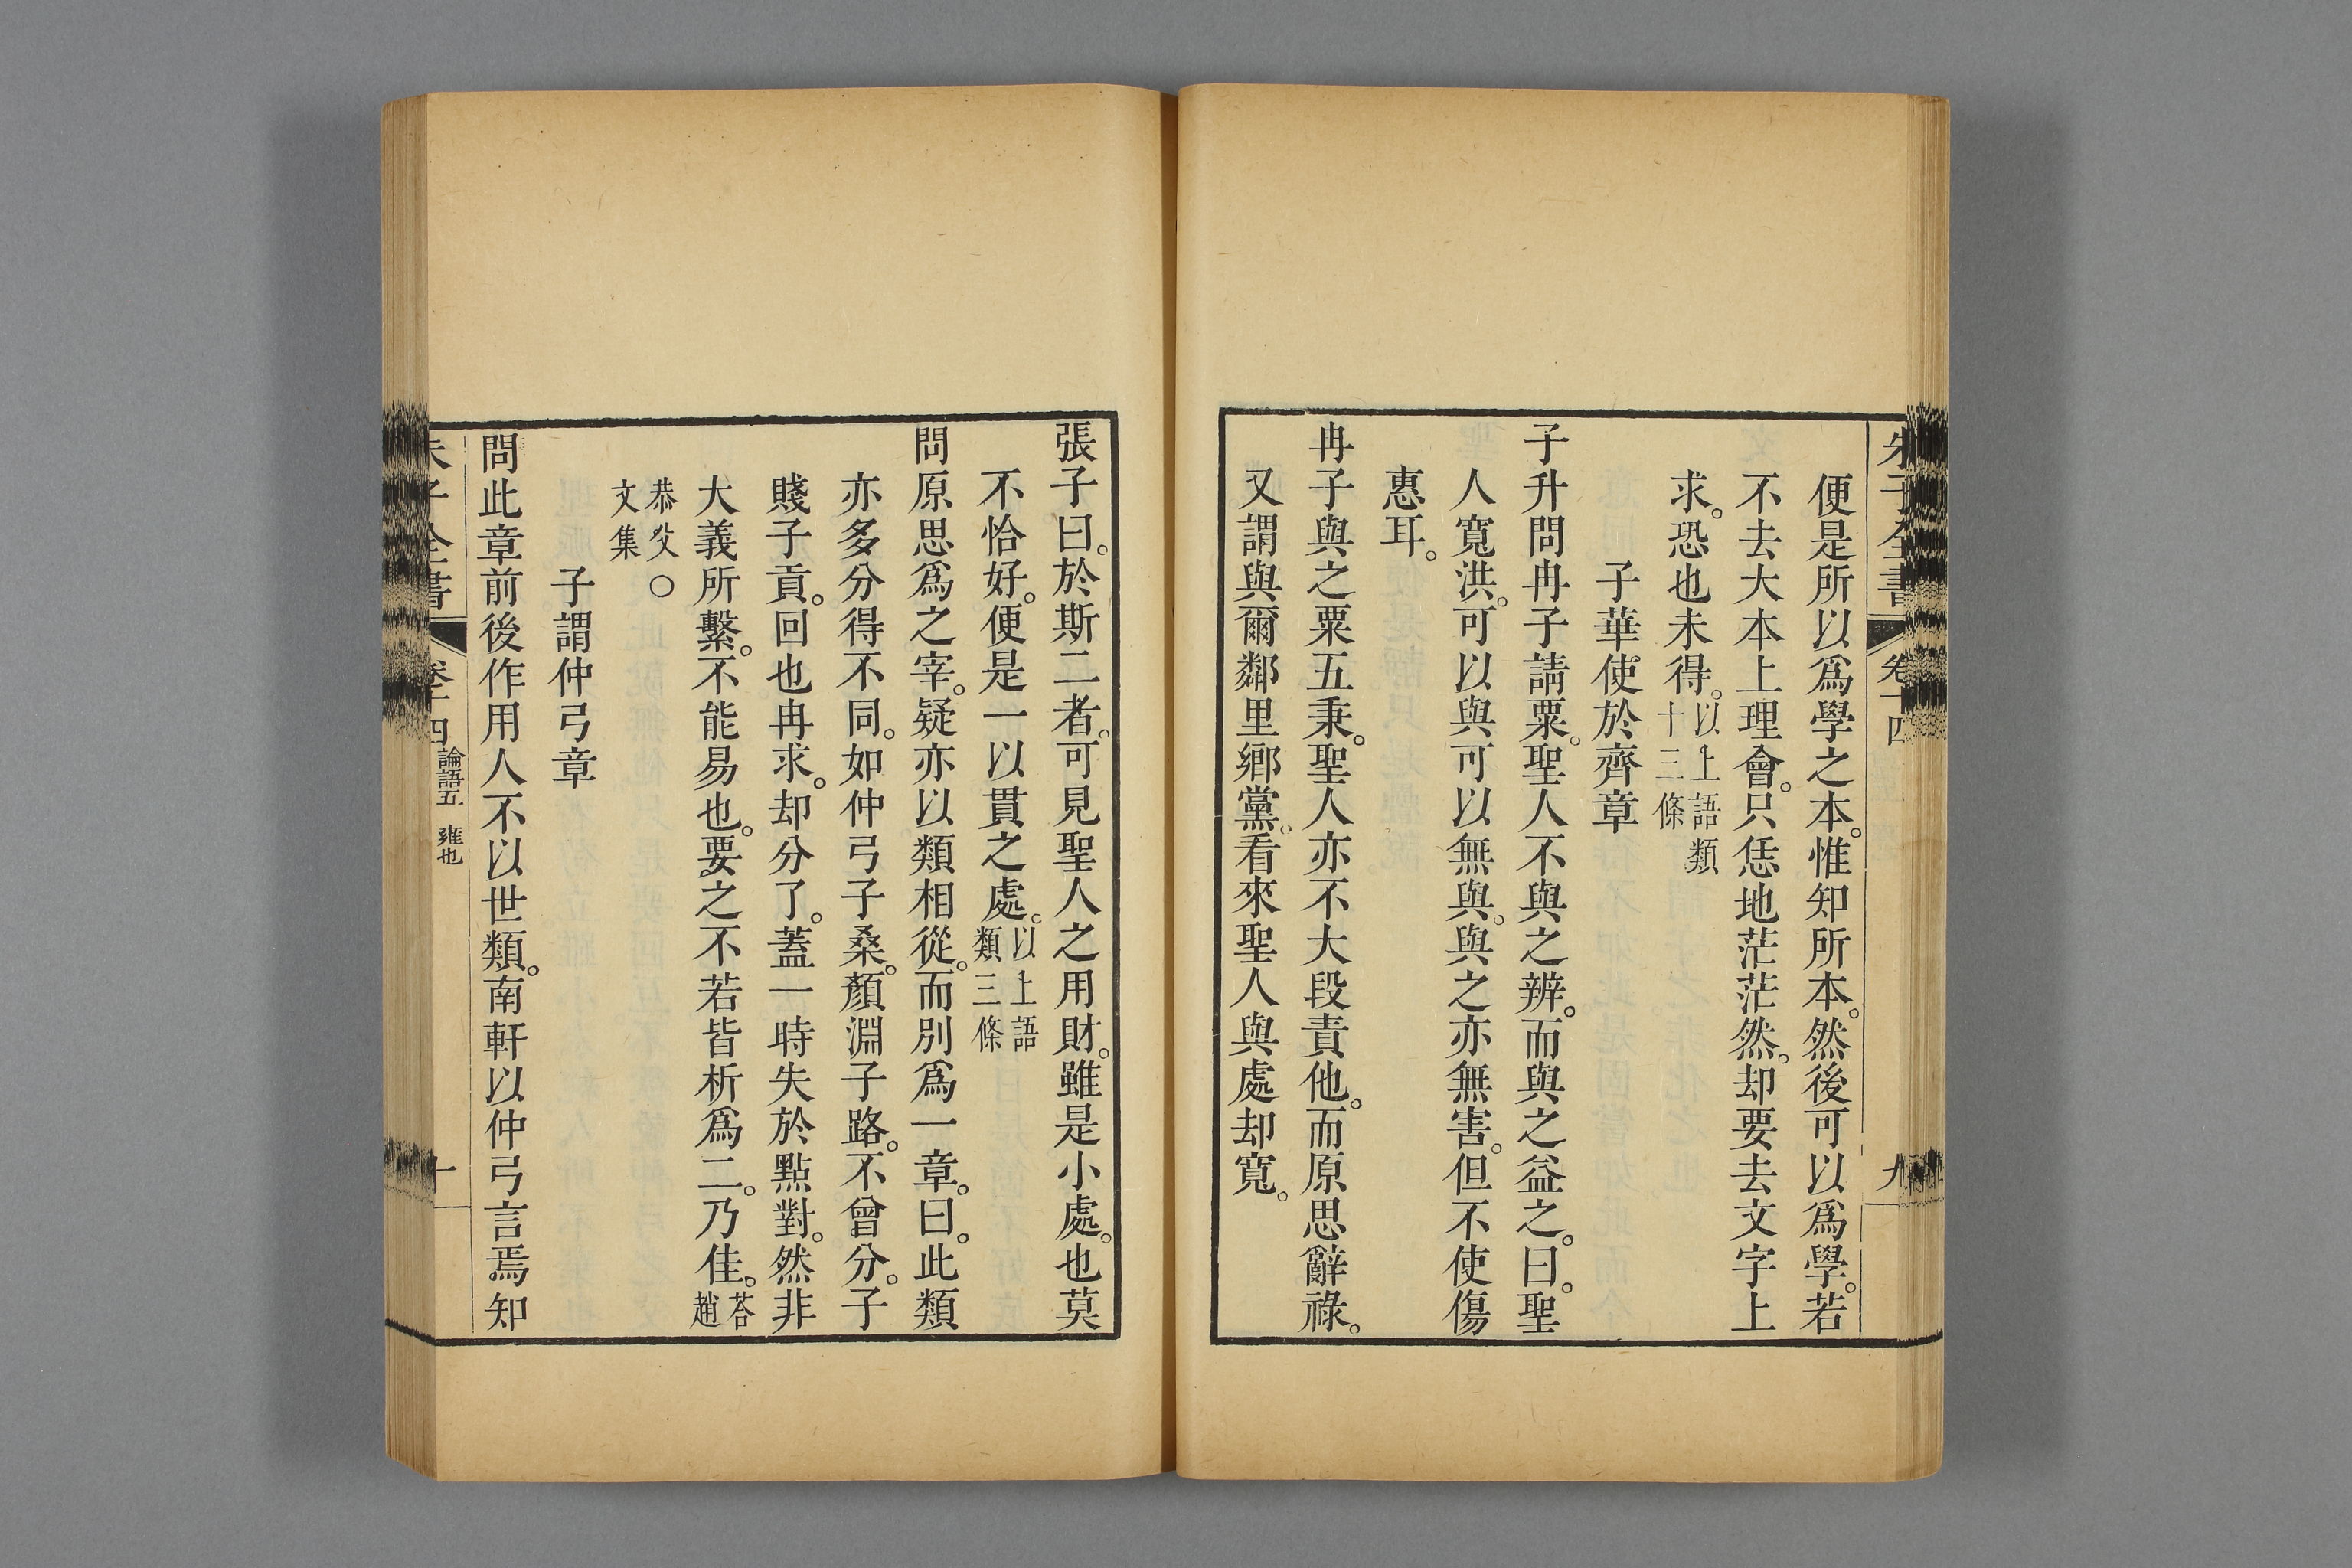 朱子全書 卷十四 九
便是所以爲學之本。惟知所本。然後可以爲學。若
不去大本上理會。只恁地茫茫然。却要去文字上
求。恐也未得。以上語類十三條
子華使於齊章
子升問冉子請粟。聖人不與之辨。而與之益之。曰。聖
人寬洪。可以與。可以無與。與之亦無害。但不使傷
惠耳。
冉子與之粟五秉。聖人亦不大段責他。而原思辭祿。
又謂與爾鄰里鄉黨。看來聖人與處却寬。
張子曰。於斯二者。可見聖人之用財。雖是小處。也莫
不恰好。便是一以貫之處。以上語類三條
問原思爲之宰。疑亦以類相從。而別爲一章。曰。此類
亦多分得不同。如仲弓子桑。顏淵子路。不曾分。子
賤子貢。回也冉求。却分了。蓋一時失於點對。然非
大義所繫。不能易也。要之不若皆析爲二。乃佳。荅趙
恭父文集○
子謂仲弓章
問此章前後作用人不以世類。南軒以仲弓言焉知
朱子全書 卷十四 論語五 雍也 十